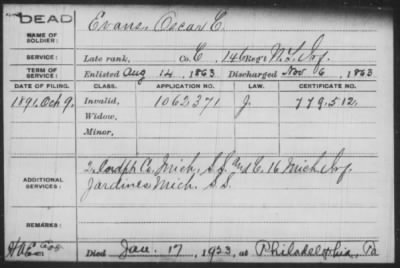 DEAD
NAME OF SOLDIER: Evans, Oscar C.
SERVICE: Late rank, Co. C, 146 Reg't Inf.
TERM OF SERVICE: Enlisted Aug 14, 1863 Discharged Nov 6, 1863
DATE OF FILING. CLASS. APPLICATION NO. LAW. CERTIFICATE NO.
1891, Oct 9. Invalid, 1062,371 J. 779,512.
Widow,
Minor,
ADDITIONAL SERVICES: 2, Co. Mich. S.S. and C. 16 Mich. Inf.
Jardines Mich. S.S.
REMARKS:
Died Jan. 17, 1933, at Philadelphia, Pa